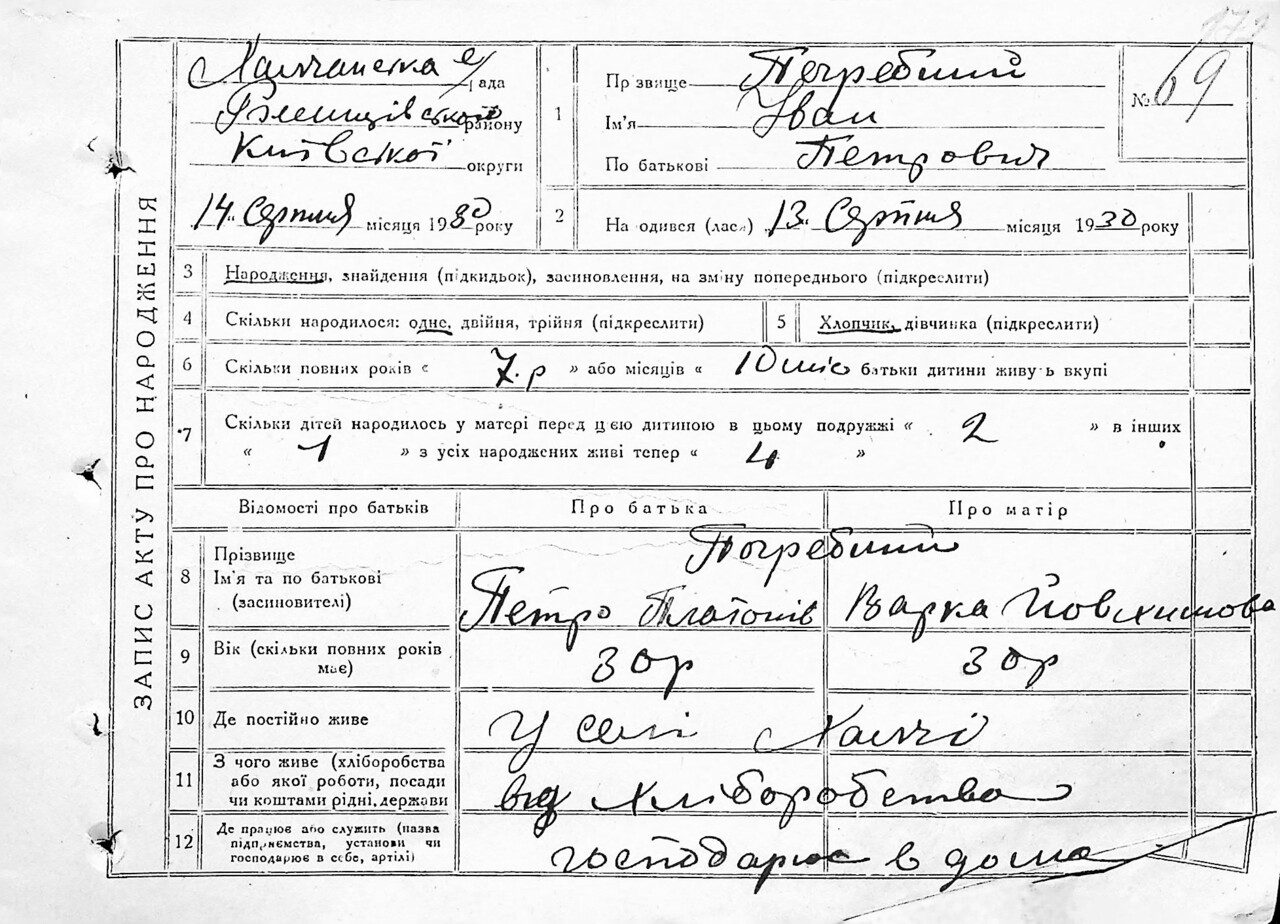 ЗАПИС АКТУ ПРО НАРОДЖЕННЯ
Халчанська с/рада
Ржищівського району
Київської округи
14 Серпня місяця 1930 року
1
Прізвище Погребний
Ім'я Іван
По батькові Петрович
№ 69
2
Народився (лася) 13 Серпня місяця 1930 року
3 Народження, знайдення (підкидьок), засиновлення, на зміну попереднього (підкреслити)
4 Скільки народилося: одне, двійня, трійня (підкреслити)
5 Хлопчик, дівчинка (підкреслити)
6 Скільки повних років « 7.р » або місяців « 10 міс батьки дитини живуть вкупі
7 Скільки дітей народилось у матері перед цією дитиною в цьому подружжі « 2 » в інших
« 1 » з усіх народжених живі тепер « 4 »
Відомості про батьків Про батька Про матір
8 Прізвище
Ім'я та по батькові
(засиновителі)
Погребний
Петро Платонів Варка Йовхимова
9 Вік (скільки повних років
має)
30р 30р
10 Де постійно живе У селі Халчі
11 З чого живе (хліборобства
або якої роботи, посади
чи коштами рідні, держави
від хліборобства
12 Де працює або служить (назва
підприємства, установи чи
господарює в себе, артілі)
господарює в дома